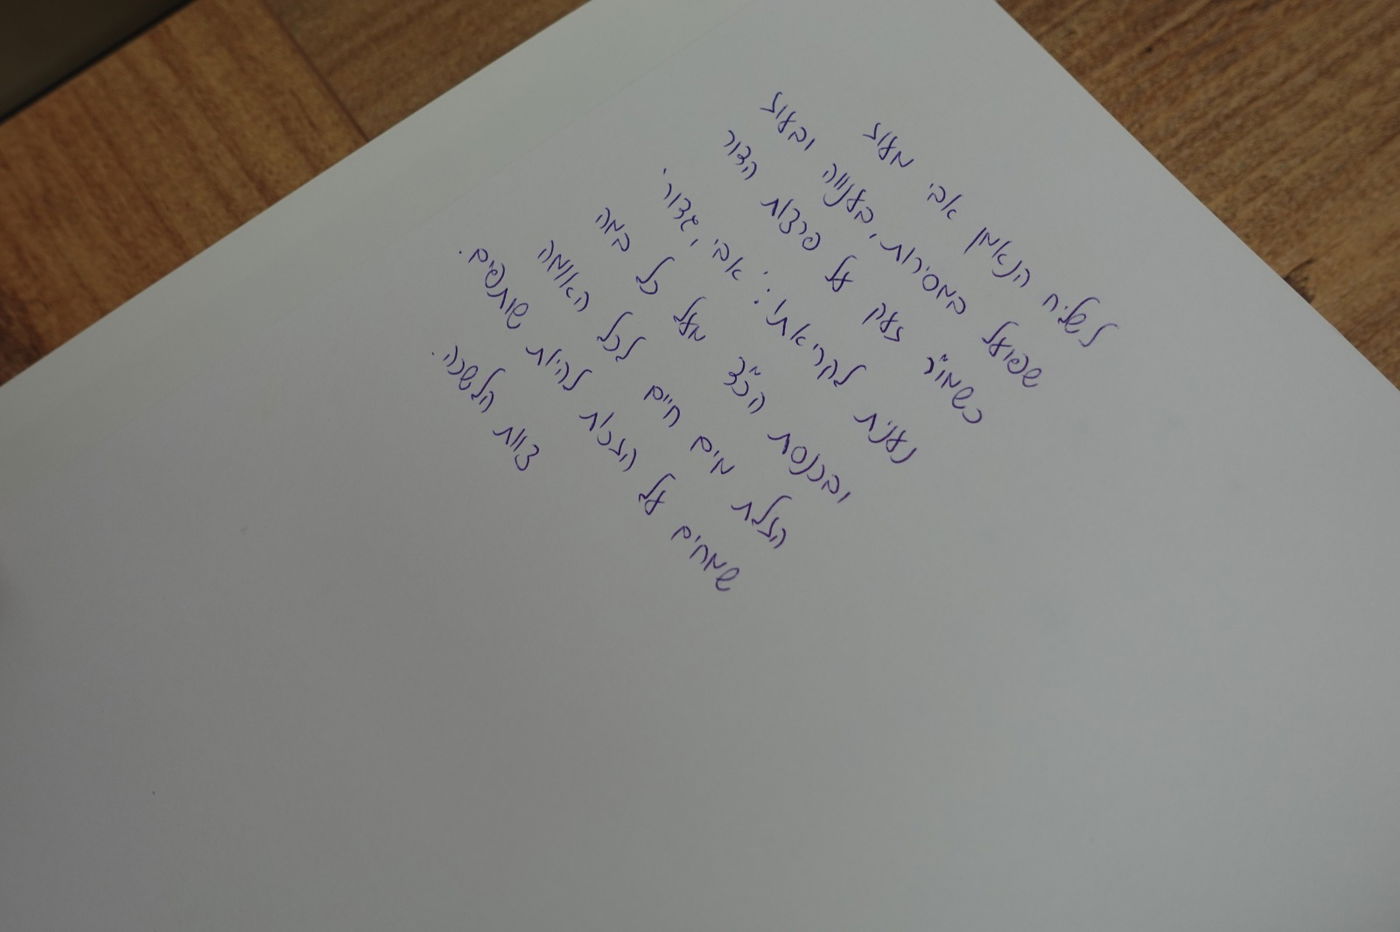 לשליח הנאמן אבי מעוז
שפועל במסירות, בענווה ובעוז
כשמו"ר זעק על פרצות הדור
נענית לקריאתו: אבי, גדור.
ובכנסת הכ"ד מעל כל במה
הזלת מים חיים לכל האומה
שמחים על הזכות להיות שותפים.
צוות הלשכה.